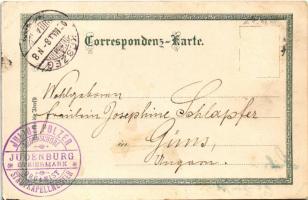 Correspondenz-Karte.
KŐSZEG
Wohlgeboren
Fräulein Josephine Schlapfer
in
Güns,
Ungarn.
JULIUS POLZER
JUDENBURG
STEIERMARK
STADTKAPELLMEISTER